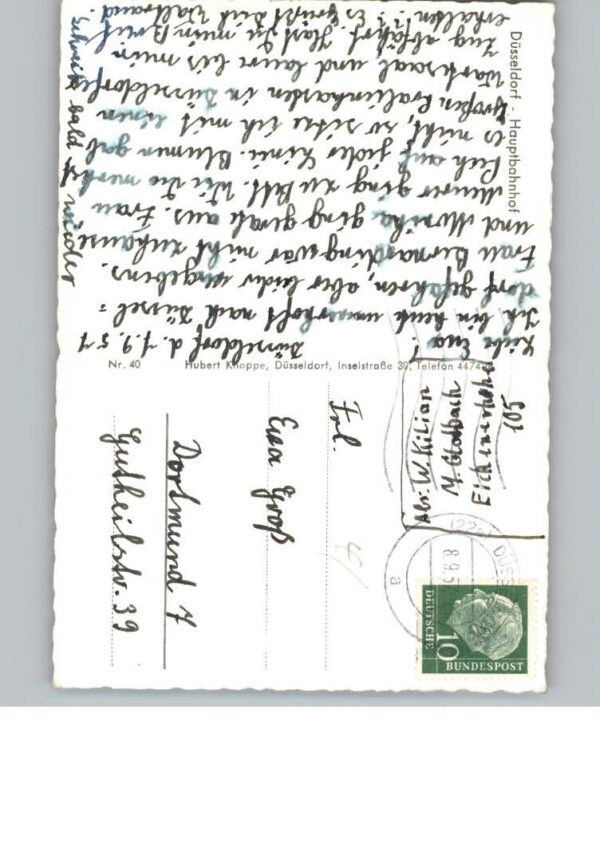 Düsseldorf - Hauptbahnhof
Düsseldorf d. 7.9.57
Liebe Eva!
Ich bin heute unverhofft nach Düssel=
dorf gefahren, aber leider vergebens.
Frau Bernarding war nicht zuhause
und Monika ging grade aus. Frau
Meurer ging zu Bett. Wie Du merkst
Pech auf jeder Linie. Blumen gab
es nicht, so sitze ich mit einem
großen Pralinenkasten in Düsseldorfer
Wartesaal und laure bis mein
Zug abfährt. Hast Du mein Brief
erhalten??? Es grüßt Dich Waltraud.
Schreibe bald wieder
Nr. 40
Hubert Knoppe, Düsseldorf, Inselstraße 30, Telefon 4474
Abs: W. Kilian
M. Gladbach
501
Frl.
Eva Groß
Dortmund 7
Gutheilstr. 39
DÜSS
8.9.5
a
10
DEUTSCHE
BUNDESPOST